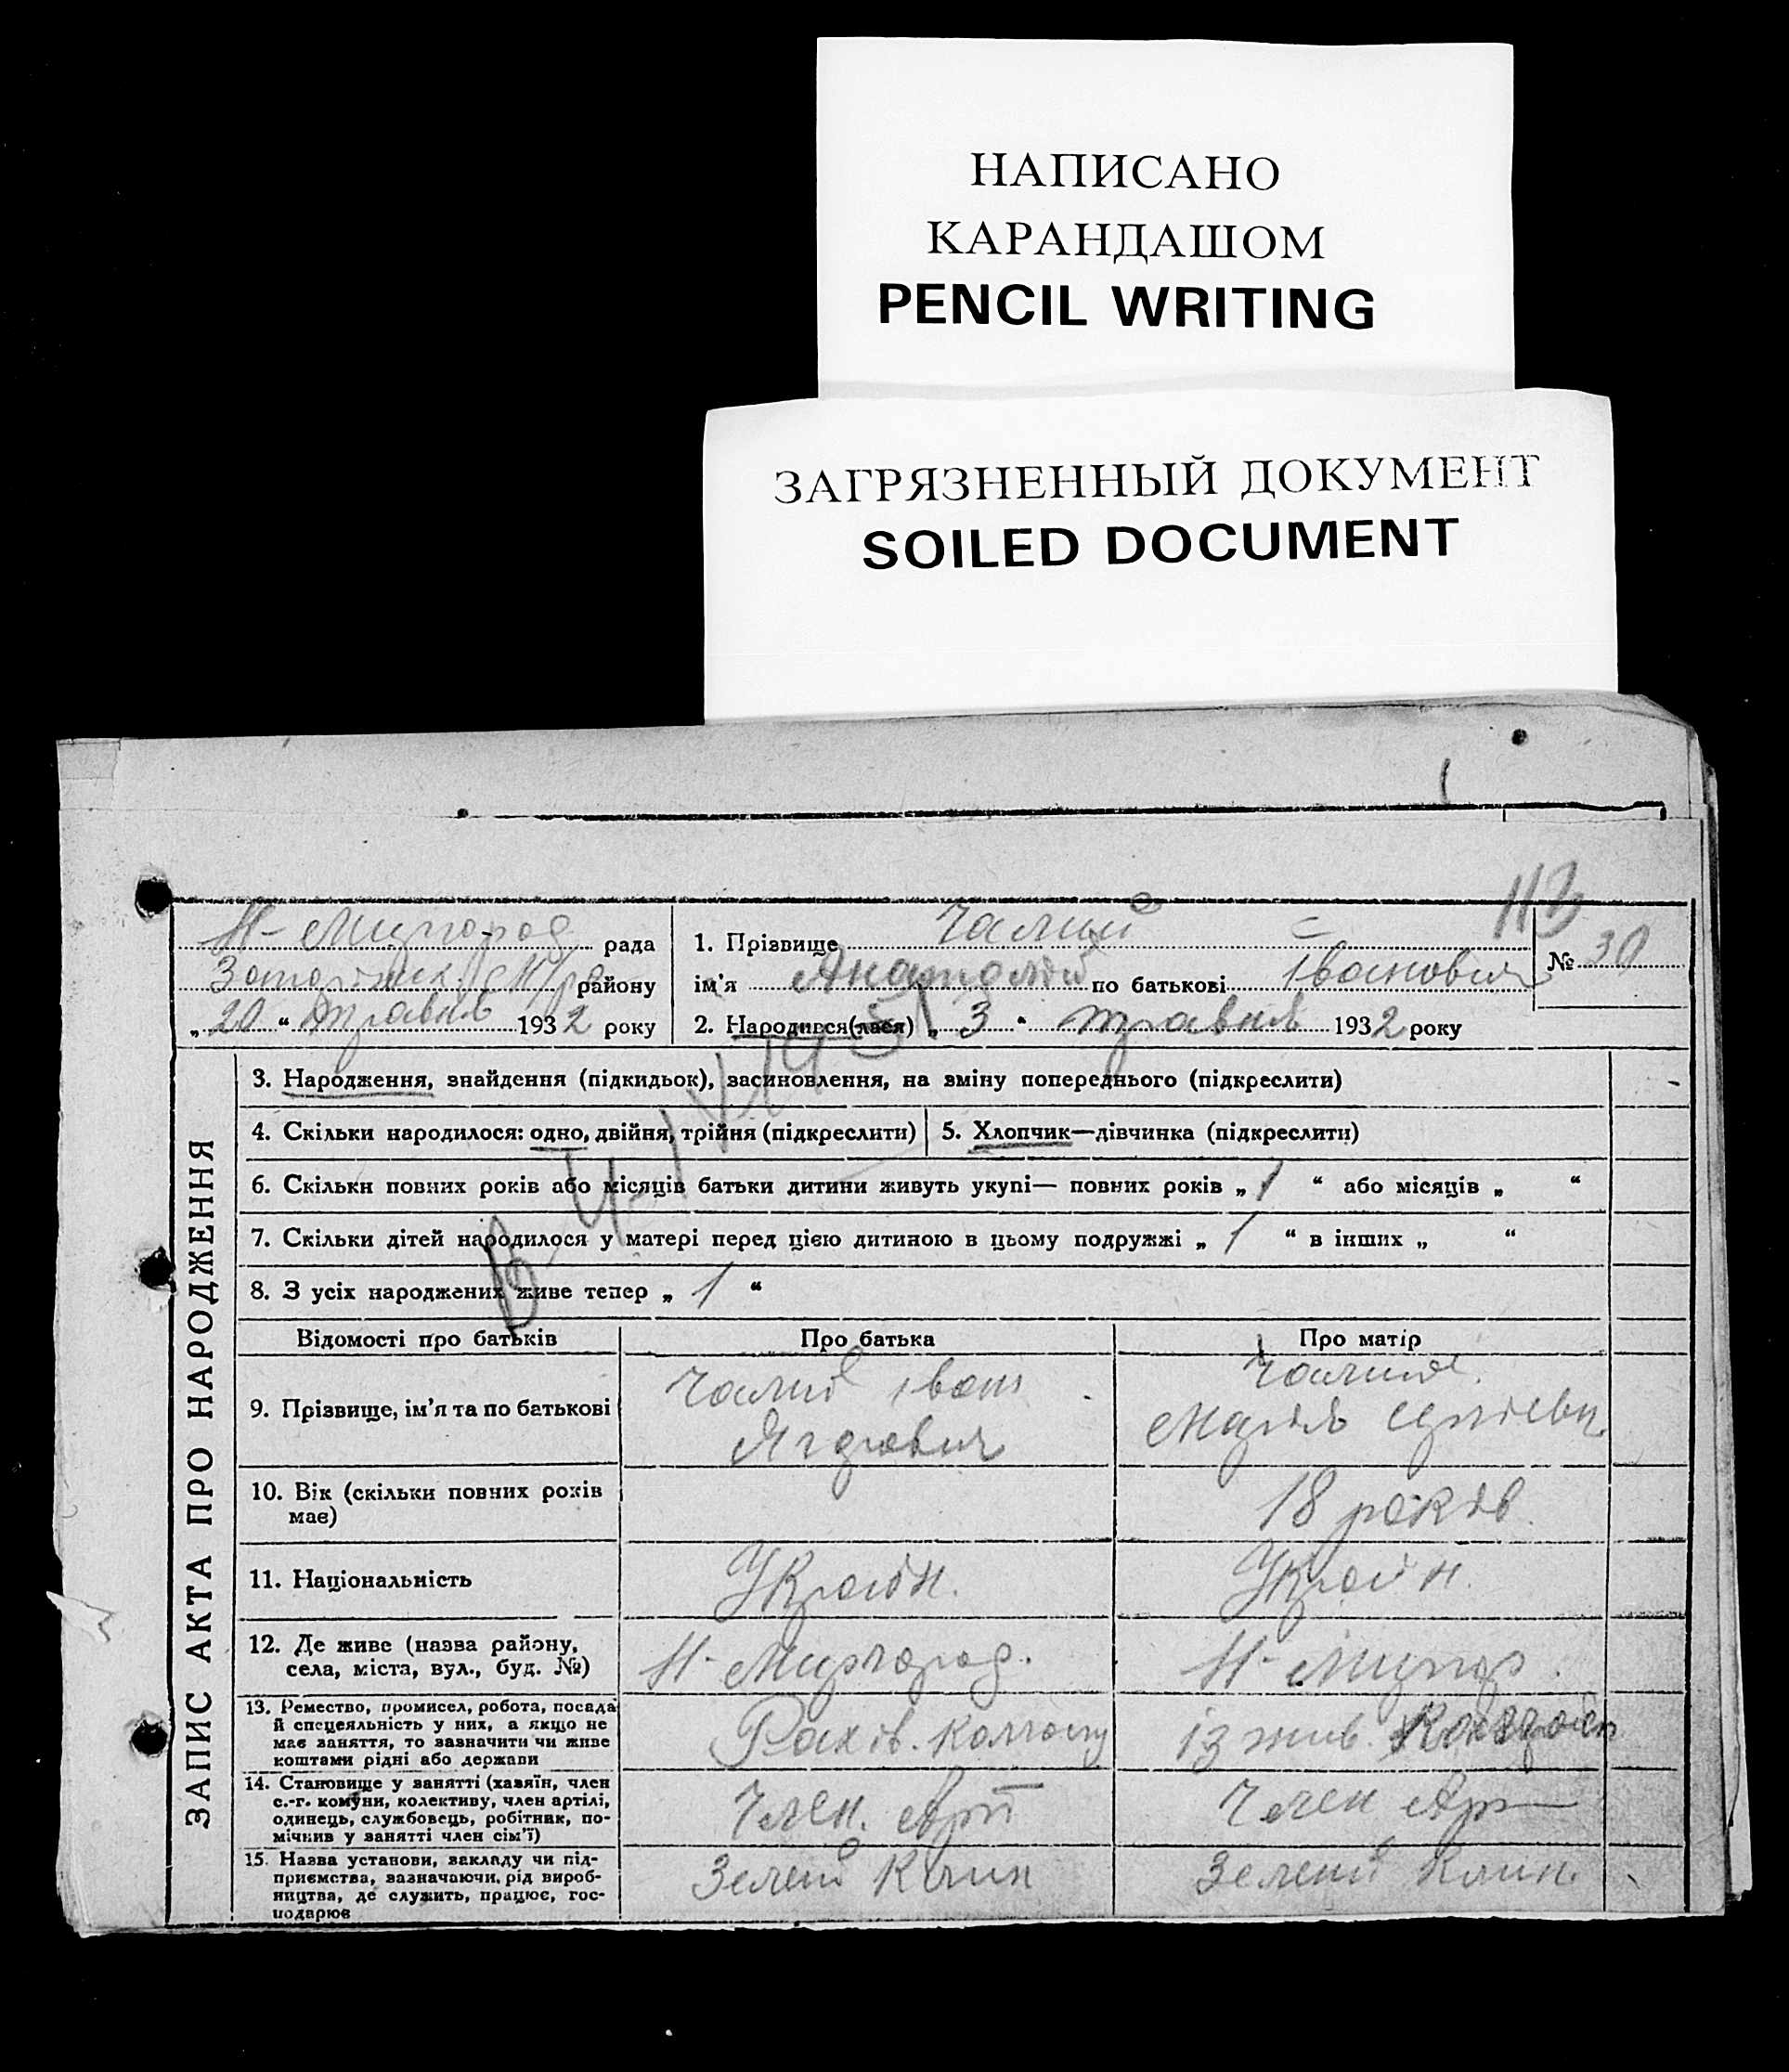 НАПИСАНО
КАРАНДАШОМ
PENCIL WRITING
ЗАГРЯЗНЕННЫЙ ДОКУМЕНТ
SOILED DOCUMENT
Н-Миргород рада
району
„ 20 “ травня 1932 року
1. Прізвище Чалий
ім'я Анатолій по батькові Іванович
2. Народився(лася) „ 3 “ травня 1932 року
№ 30
ЗАПИС АКТА ПРО НАРОДЖЕННЯ
3. Народження, знайдення (підкидьок), засиновлення, на зміну попереднього (підкреслити)
4. Скільки народилося: одно, двійня, трійня (підкреслити)
5. Хлопчик—дівчинка (підкреслити)
6. Скільки повних років або місяців батьки дитини живуть укупі— повних років „ 1 “ або місяців „ “
7. Скільки дітей народилося у матері перед цією дитиною в цьому подружжі „ 1 “ в інших „ “
8. З усіх народжених живе тепер „ 1 “
Відомості про батьків
Про батька
Про матір
9. Прізвище, ім'я та по батькові
Чалий Іван
Чалий
Марія
10. Вік (скільки повних років
має)
18 років
11. Національність
Україн.
Україн.
12. Де живе (назва району,
села, міста, вул., буд. №)
Н-Миргород.
Н-Миргор.
13. Ремество, промисел, робота, посада
й спецеяльність у них, а якщо не
має заняття, то зазначити чи живе
коштами рідні або держави
Рахів. колгоспу
із жив.
14. Становище у занятті (хазяїн, член
с.-г. комуни, колективу, член артілі,
одинець, службовець, робітник, по-
мічник у занятті член сім'ї)
Член. Арт
Член Арт
15. Назва установи, закладу чи під-
приємства, зазначаючи, рід вироб-
ництва, де служить, працює, гос-
подарює
Зелений Клин
Зелений Клин.